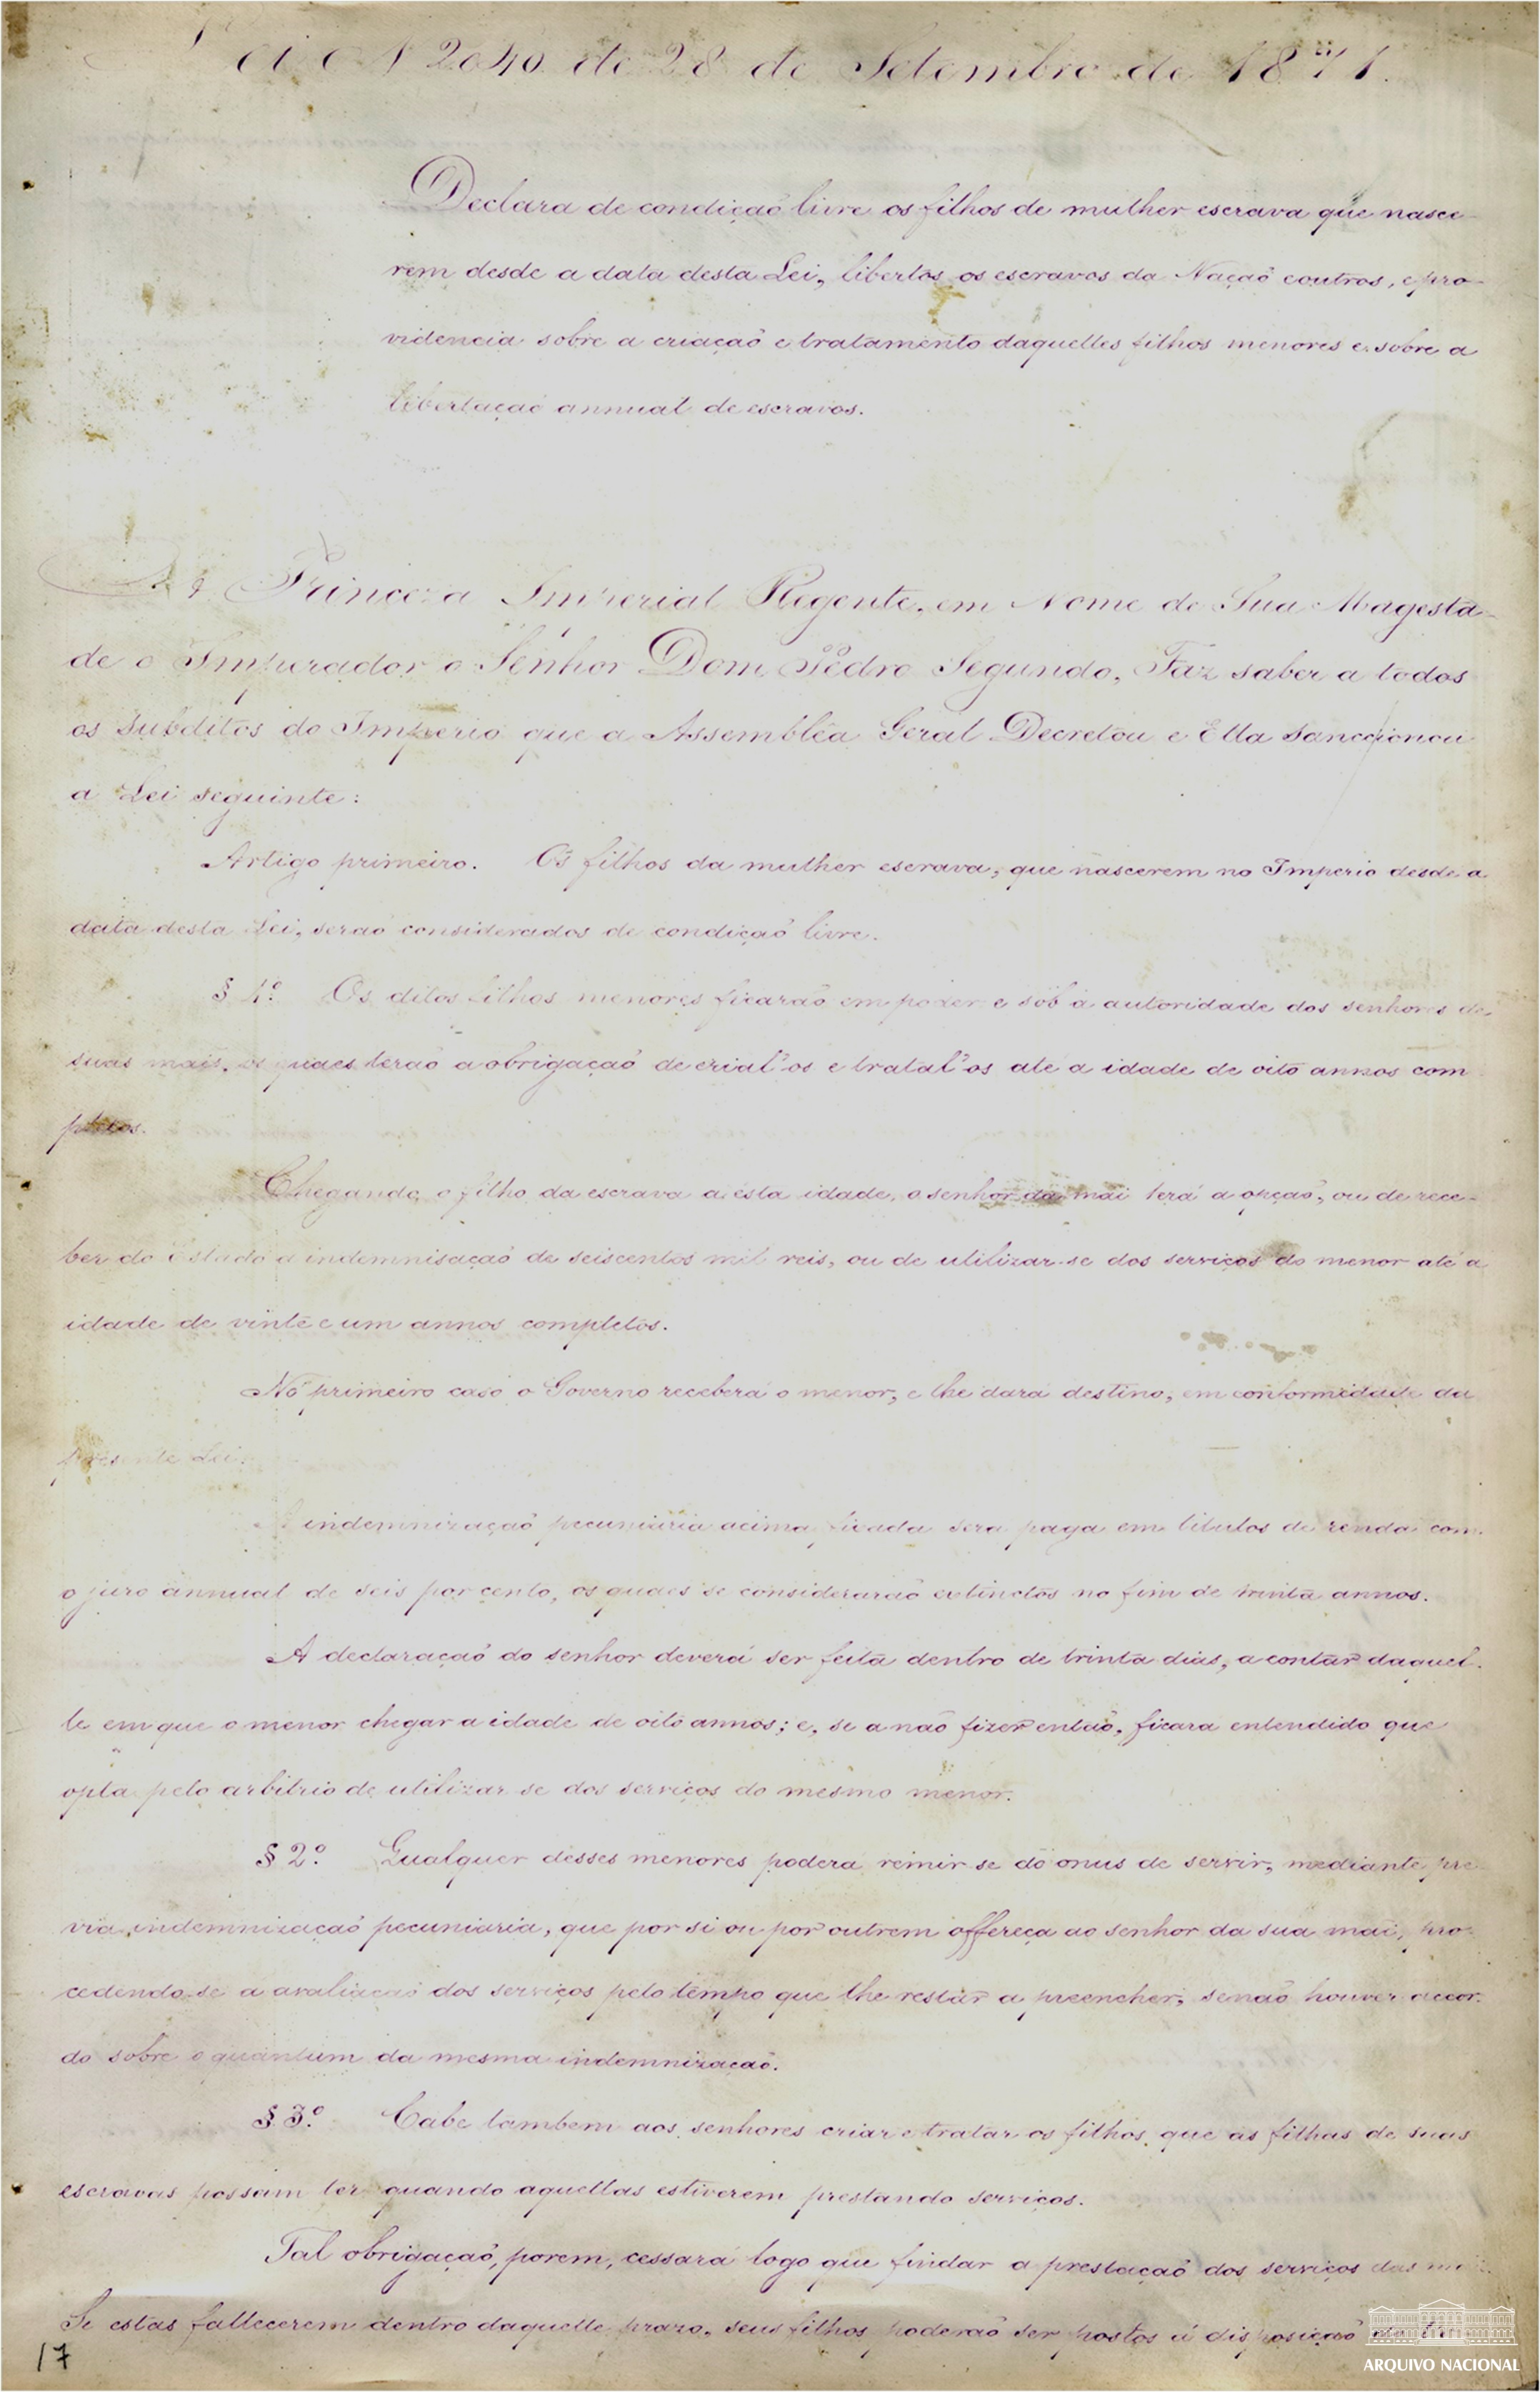 Lei N 2040 de 28 de Setembro de 1871.
Declara de condição livre os filhos de mulher escrava que nasce-
rem desde a data desta Lei, libertos os escravos da Nação e outros, e pro-
videncia sobre a criação e tratamento daquelles filhos menores e sobre a
libertação annual de escravos.
A Princeza Imperial Regente, em Nome de Sua Magesta-
de o Imperador o Senhor Dom Pedro Segundo, Faz saber a todos
os subditos do Imperio que a Assembléa Geral Decretou e Ella Sanccionou
a Lei seguinte:
Artigo primeiro. Os filhos da mulher escrava, que nascerem no Imperio desde a
data desta Lei, serão considerados de condição livre.
§ 1º. Os ditos filhos menores ficarão em poder e sob a autoridade dos senhores de
suas mais, os quaes terão a obrigação de crial-os e tratal-os até a idade de oito annos com
pletos.
Chegando o filho da escrava a esta idade, o senhor da mai terá a opção, ou de rece-
ber do Estado a indemnisação de seiscentos mil reis, ou de utilizar-se dos serviços do menor até a
idade de vinte e um annos completos.
No primeiro caso o Governo receberá o menor, e lhe dará destino, em conformidade da
presente Lei.
A indemnização pecuniaria acima fixada será paga em titulos de renda com
o juro annual de seis por cento, os quaes se considerarão extinctos no fim de trinta annos.
A declaração do senhor deverá ser feita dentro de trinta dias, a contar daquel-
le em que o menor chegar a idade de oito annos; e, se a não fizer então, ficará entendido que
opta pelo arbitrio de utilizar-se dos serviços do mesmo menor.
§ 2º. Qualquer desses menores poderá remir-se do onus de servir, mediante pre-
via indemnização pecuniaria, que por si ou por outrem offereça ao senhor da sua mai, pro-
cedendo-se a avaliação dos serviços pelo tempo que lhe restar a preencher, se não houver accor-
do sobre o quantum da mesma indemnização.
§ 3º. Cabe tambem aos senhores criar e tratar os filhos que as filhas de suas
escravas possam ter quando aquellas estiverem prestando serviços.
Tal obrigação, porem, cessará logo que findar a prestação dos serviços das
Se estas fallecerem dentro daquelle prazo, seus filhos poderão ser postos á disposição
17
ARQUIVO NACIONAL